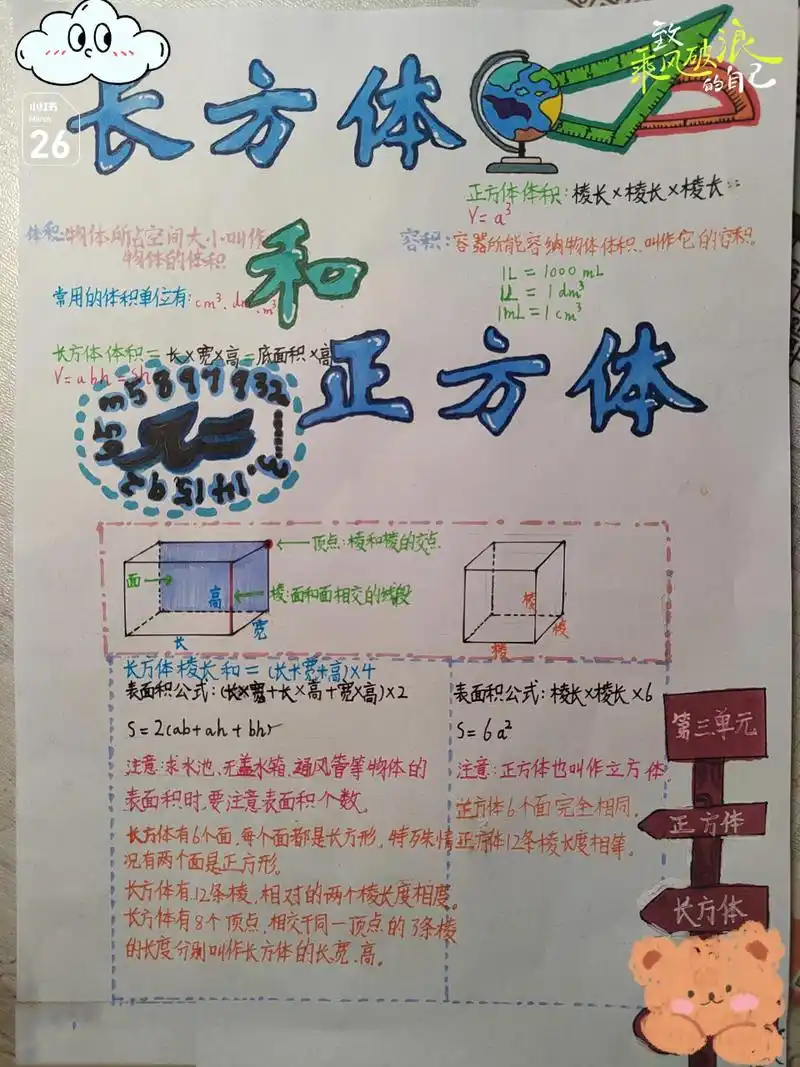 致
乘风破浪
的自己
小红书
March
26
长方体
和
正方体
正方体体积:棱长×棱长×棱长
V=a³
体积:物体所占空间大小叫作
物体的体积
容积:容器所能容纳物体体积,叫作它的容积。
1L=1000mL
1L=1dm³
1mL=1cm³
常用的体积单位有:cm³、dm³、m³
长方体体积=长×宽×高=底面积×高
V=abh=Sh
π=3.14159265358979932
顶点:棱和棱的交点
面
高
棱:面和面相交的线段
宽
长
棱
棱
棱
长方体棱长和=(长+宽+高)×4
表面积公式:(长×宽+长×高+宽×高)×2
S=2(ab+ah+bh)
注意:求水池、无盖水箱、通风管等物体的
表面积时,要注意表面积个数。
长方体有6个面,每个面都是长方形,特殊情
况有两个面是正方形。
长方体有12条棱,相对的两个棱长度相度。
长方体有8个顶点,相交于同一顶点的3条棱
的长度分别叫作长方体的长、宽、高。
表面积公式:棱长×棱长×6
S=6a²
注意:正方体也叫作立方体
正方体6个面完全相同。
正方体12条棱长度相等。
第三单元
正方体
长方体